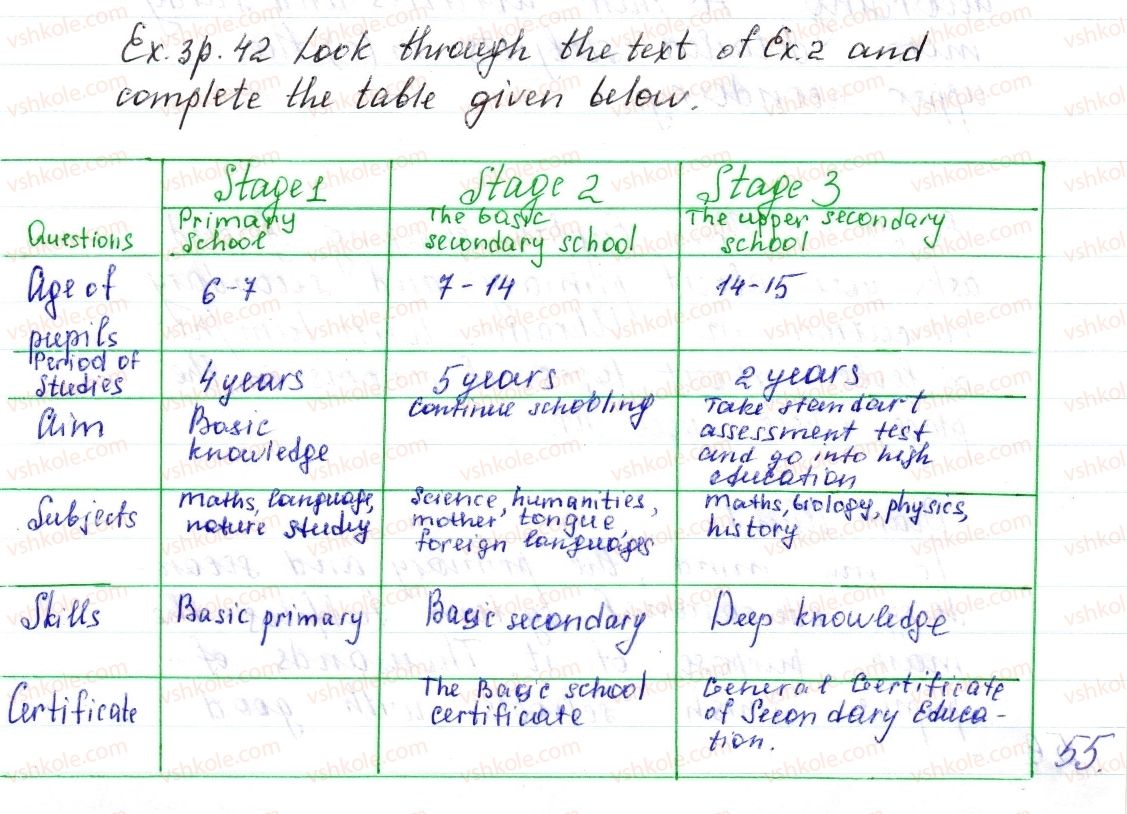 Ex. 3p. 42 Look through the text of Ex. 2 and
complete the table given below.
Stage 1 Stage 2 Stage 3
Questions
Primary
school
The basic
secondary school
The upper secondary
school
Age of
pupils
6-7
7-14
14-15
Period of
studies
4 years
5 years
2 years
Aim
Basic
knowledge
Continue schooling
Take standart
assessment test
and go into high
education
Subjects
maths, language,
nature study
Science, humanities,
mother tongue,
foreign languages
maths, biology, physics,
history
Skills
Basic primary
Basic secondary
Deep knowledge
Certificate
The Basic school
certificate
General Certificate
of Secondary Educa-
tion.
55.
vshkole.com